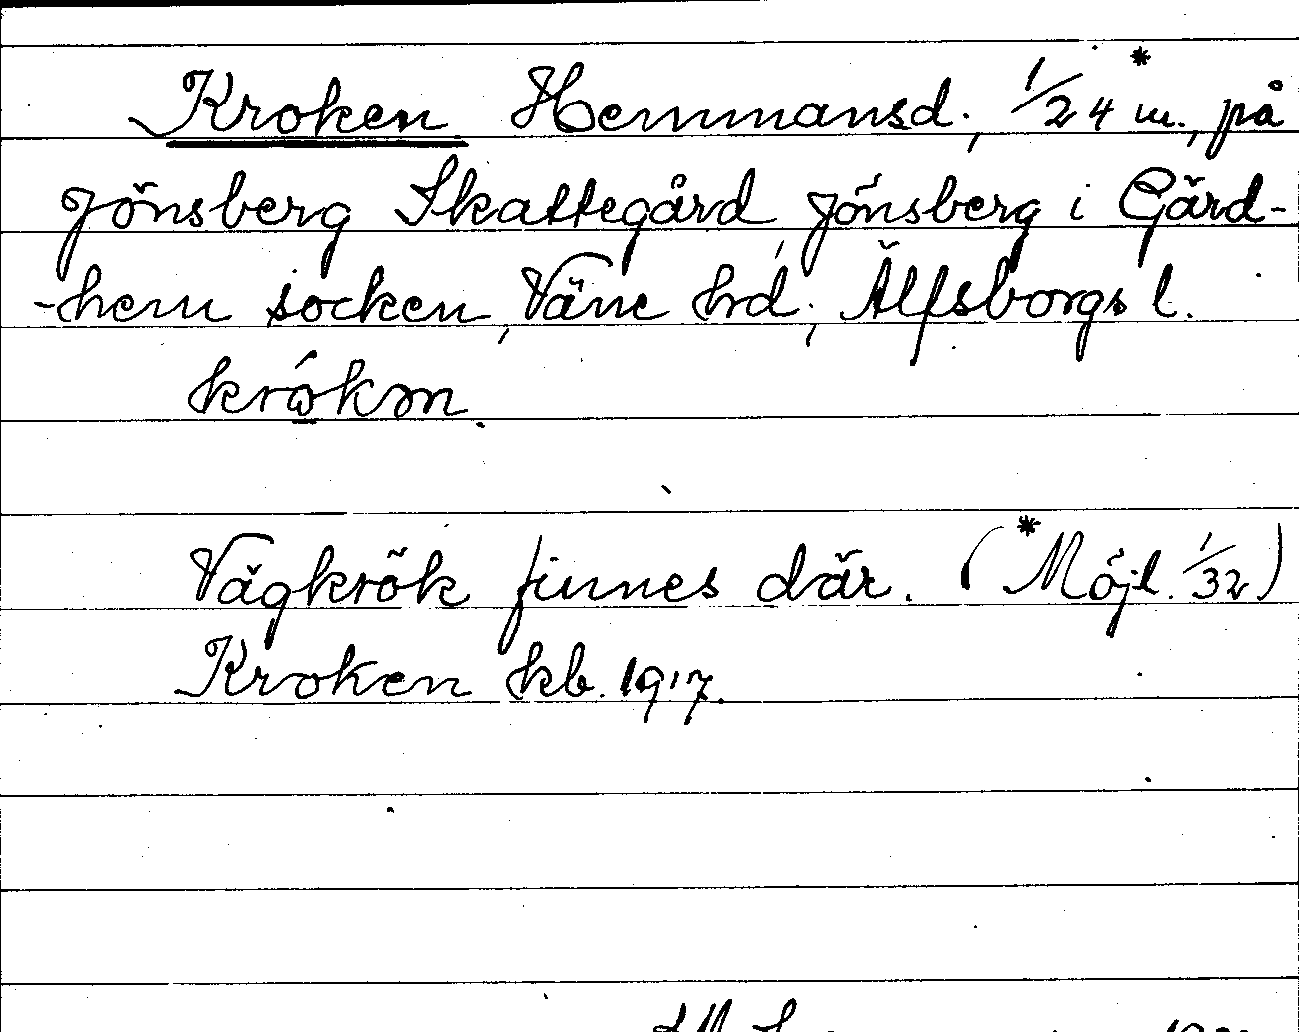 Kroken Hemmansd., 1/24* m., på
Jönsberg Skattegård, Jönsberg i Gärd-
-hem socken, Väne hd; Älfsborgs l.
krókən.
Vägkrök finnes där. (*Möjl. 1/32)
Kroken kb. 1917.